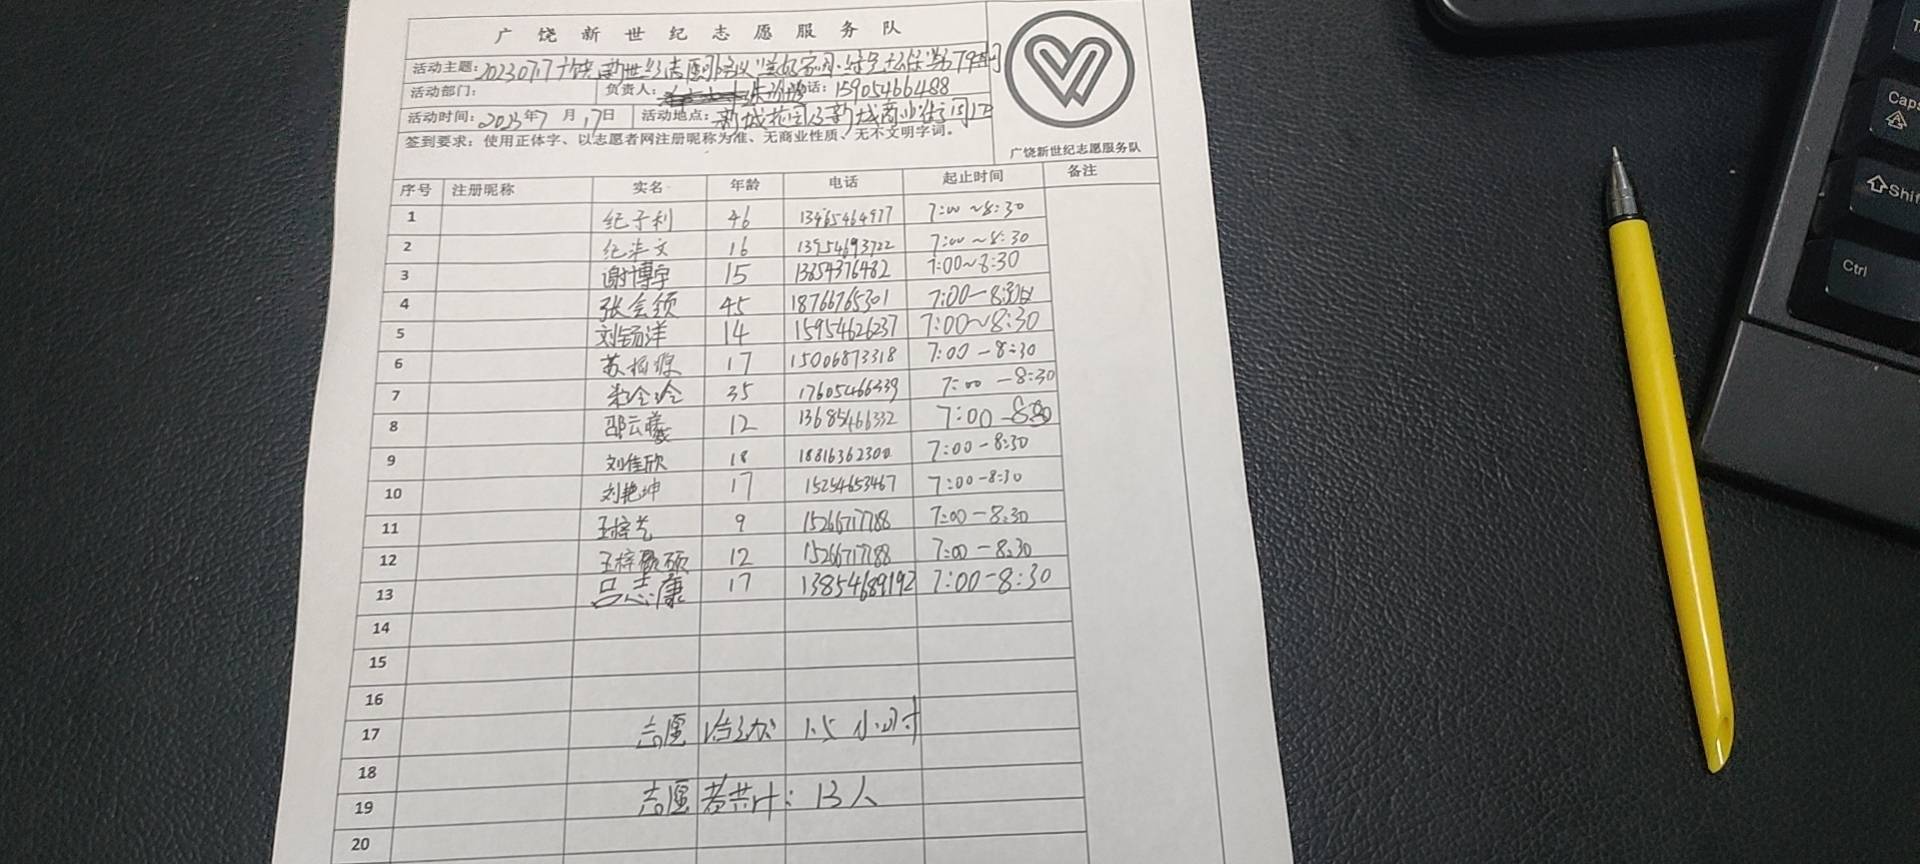 广饶新世纪志愿服务队
活动主题：2023.07.17广饶新世纪志愿服务
活动部门： 负责人： 电话：15905466488
活动时间：2023年7月17日 活动地点：新城花园及新城商业街
签到要求：使用正体字、以志愿者网注册昵称为准、无商业性质、无不文明字词。
广饶新世纪志愿服务队
序号 注册昵称 实名 年龄 电话 起止时间 备注
1 纪子利 46 13465464977 7:00~8:30
2 纪 文 16 13954693722 7:00~8:30
3 谢博宇 15 13854376482 7:00~8:30
4 张会颂 45 18766765301 7:00-8:30
5 刘钖洋 14 15954626237 7:00~8:30
6 苏柏源 17 15006873318 7:00-8:30
7 35 17605466339 7:00-8:30
8 邵云曦 12 13685466332 7:00-8:30
9 刘佳欣 18 18816362300 7:00-8:30
10 刘艳坤 17 15254653467 7:00-8:30
11 王梓 9 15266717788 7:00-8:30
12 王梓硕 12 15266717788 7:00-8:30
13 吕志康 17 13854689192 7:00-8:30
14
15
16
17 志愿 1.5小时
18
19 志愿者共计：13人
20
Caps
Shi
Ctrl